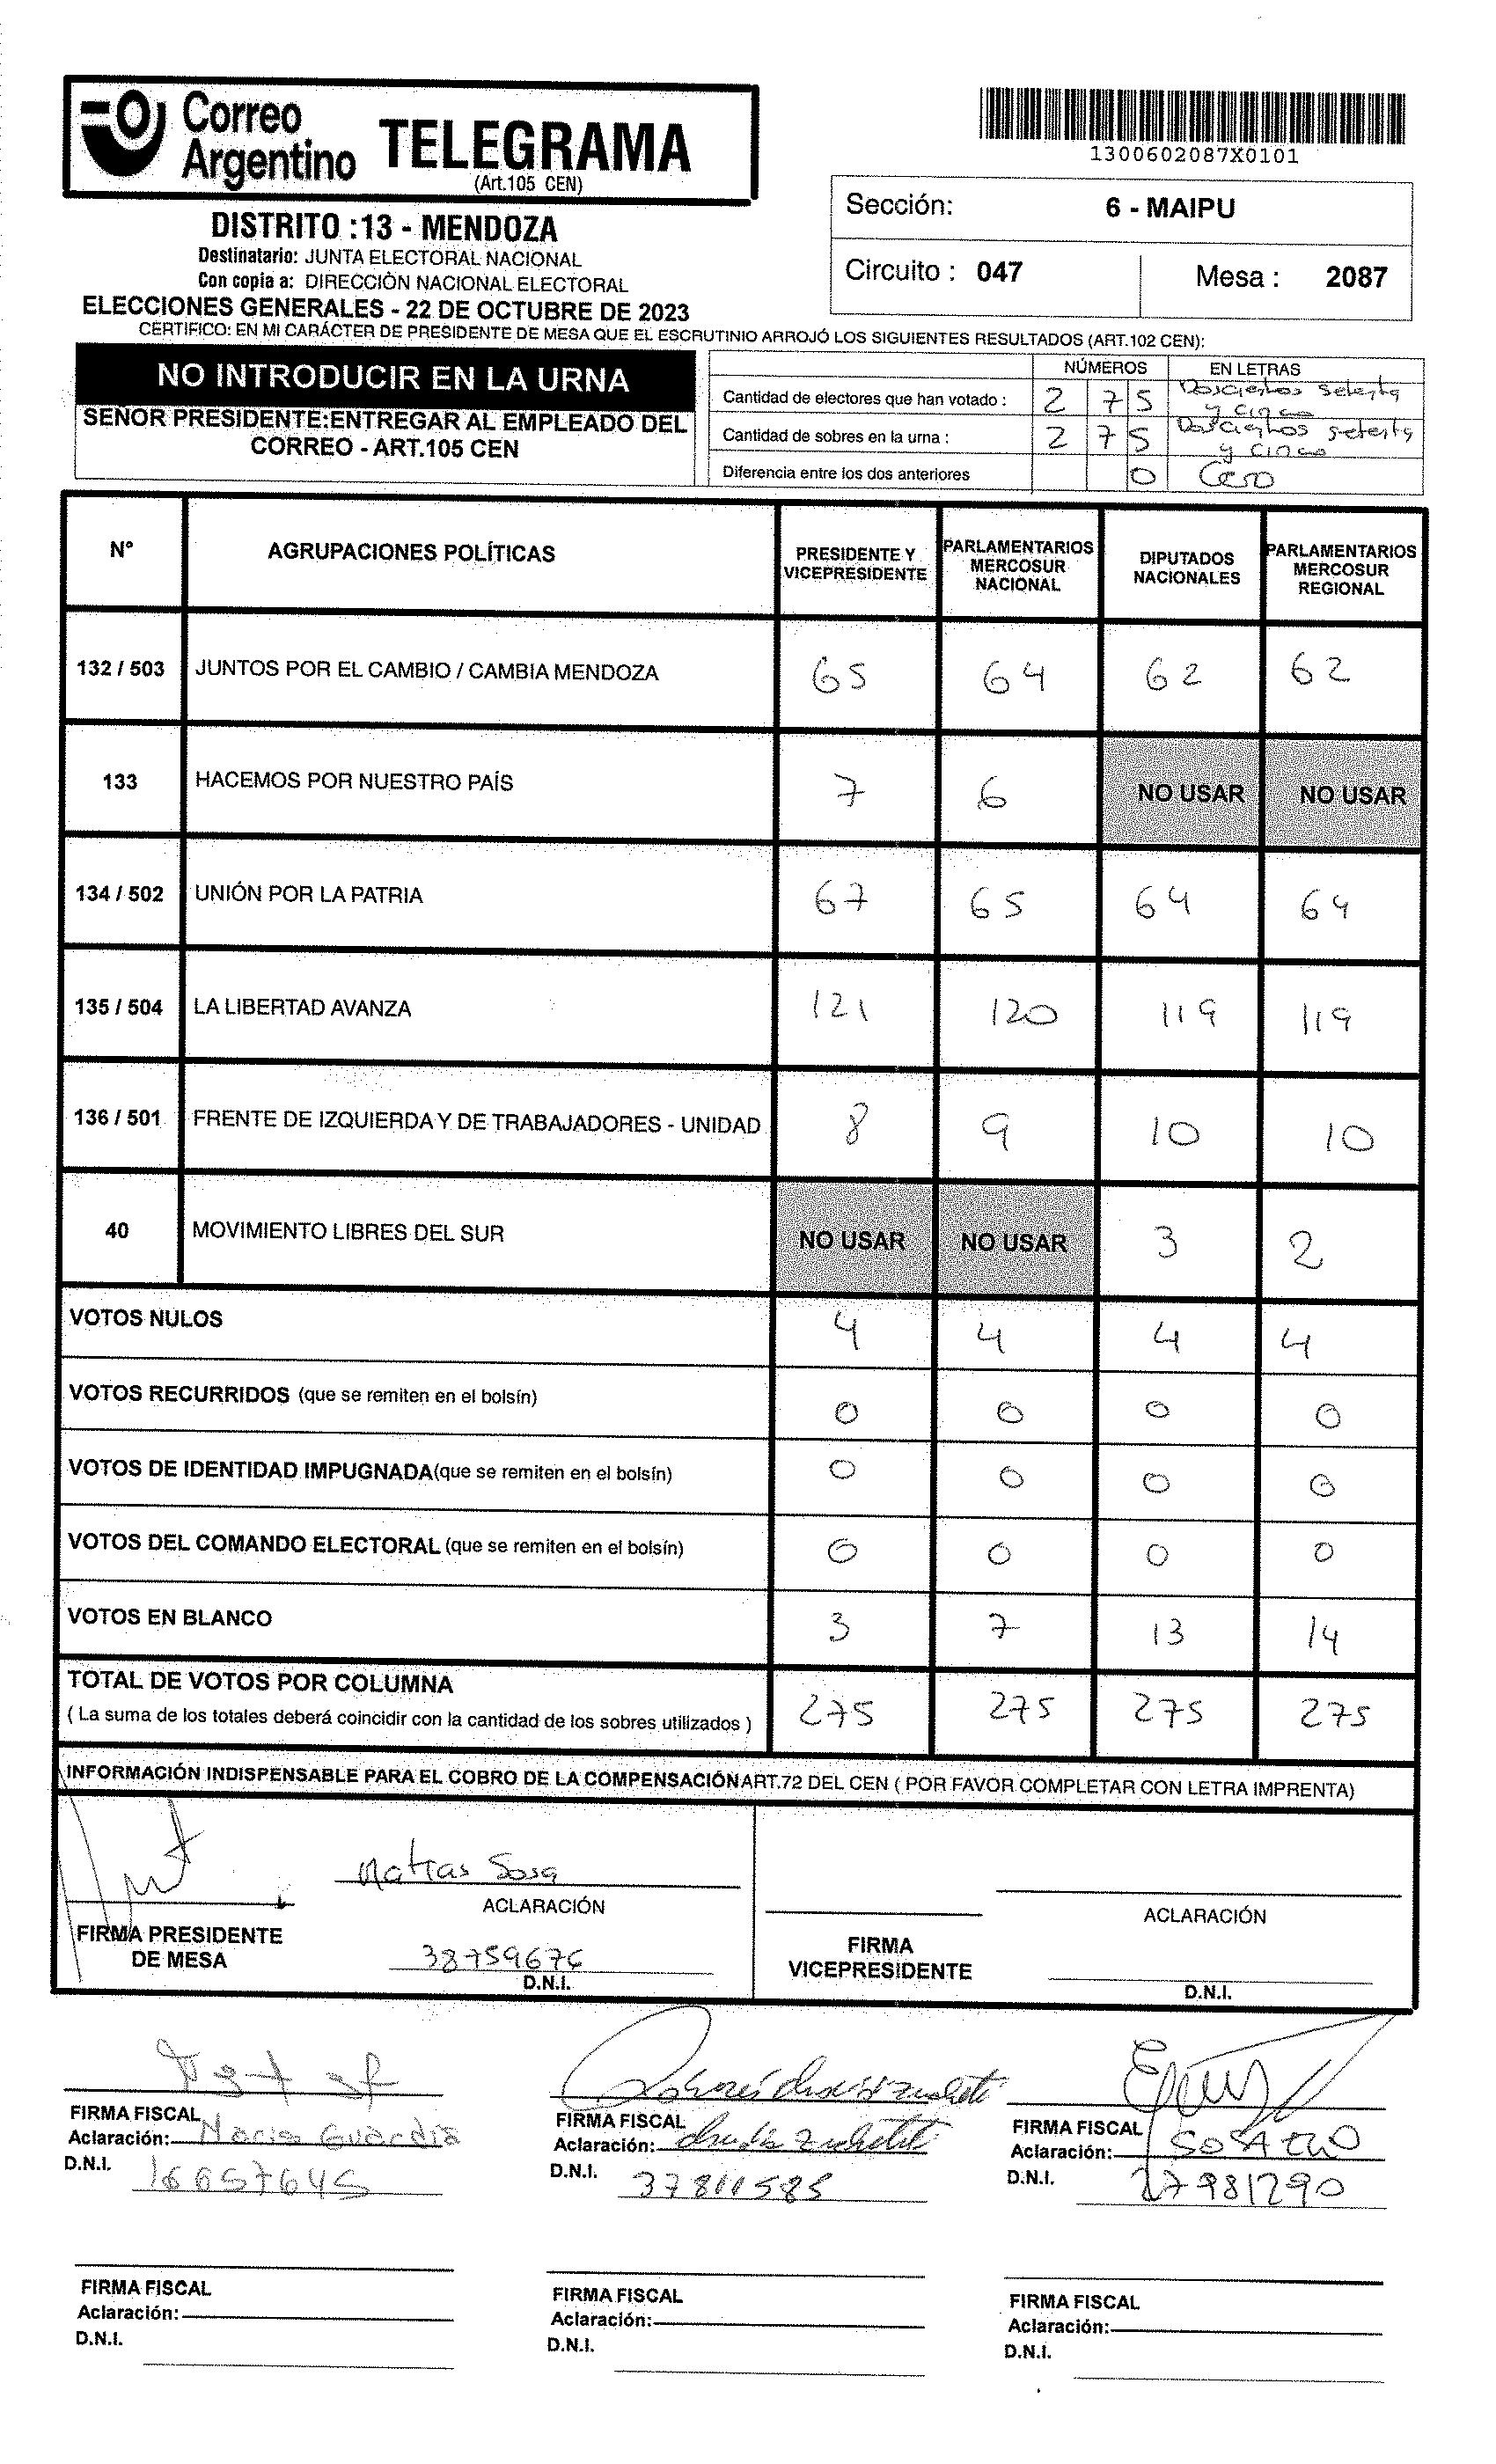 Correo Argentino TELEGRAMA
(Art.105 CEN)
1300602087X0101
DISTRITO :13 - MENDOZA
Destinatario: JUNTA ELECTORAL NACIONAL
Con copia a: DIRECCIÓN NACIONAL ELECTORAL
ELECCIONES GENERALES - 22 DE OCTUBRE DE 2023
Sección: 6 - MAIPU
Circuito : 047 Mesa : 2087
CERTIFICO: EN MI CARÁCTER DE PRESIDENTE DE MESA QUE EL ESCRUTINIO ARROJÓ LOS SIGUIENTES RESULTADOS (ART.102 CEN):
NO INTRODUCIR EN LA URNA
SEÑOR PRESIDENTE:ENTREGAR AL EMPLEADO DEL
CORREO - ART.105 CEN
NÚMEROS EN LETRAS
Cantidad de electores que han votado : 2 7 5 Doscientos setenta y cinco
Cantidad de sobres en la urna : 2 7 5 Doscientos setenta y cinco
Diferencia entre los dos anteriores 0 Cero
N° AGRUPACIONES POLÍTICAS PRESIDENTE Y VICEPRESIDENTE PARLAMENTARIOS MERCOSUR NACIONAL DIPUTADOS NACIONALES PARLAMENTARIOS MERCOSUR REGIONAL
132 / 503 JUNTOS POR EL CAMBIO / CAMBIA MENDOZA 65 64 62 62
133 HACEMOS POR NUESTRO PAÍS 7 6 NO USAR NO USAR
134 / 502 UNIÓN POR LA PATRIA 67 65 64 64
135 / 504 LA LIBERTAD AVANZA 121 120 119 119
136 / 501 FRENTE DE IZQUIERDA Y DE TRABAJADORES - UNIDAD 8 9 10 10
40 MOVIMIENTO LIBRES DEL SUR NO USAR NO USAR 3 2
VOTOS NULOS 4 4 4 4
VOTOS RECURRIDOS (que se remiten en el bolsín) 0 0 0 0
VOTOS DE IDENTIDAD IMPUGNADA(que se remiten en el bolsín) 0 0 0 0
VOTOS DEL COMANDO ELECTORAL (que se remiten en el bolsín) 0 0 0 0
VOTOS EN BLANCO 3 7 13 14
TOTAL DE VOTOS POR COLUMNA
( La suma de los totales deberá coincidir con la cantidad de los sobres utilizados ) 275 275 275 275
INFORMACIÓN INDISPENSABLE PARA EL COBRO DE LA COMPENSACIÓN ART.72 DEL CEN ( POR FAVOR COMPLETAR CON LETRA IMPRENTA)
Matias Sosa
ACLARACIÓN ACLARACIÓN
FIRMA PRESIDENTE DE MESA
38759676
D.N.I.
FIRMA VICEPRESIDENTE
D.N.I.
FIRMA FISCAL FIRMA FISCAL FIRMA FISCAL
Aclaración: Maria Guardia Aclaración: Aclaración: SOSA
D.N.I. 16657645 D.N.I. 37811585 D.N.I. 27981290
FIRMA FISCAL FIRMA FISCAL FIRMA FISCAL
Aclaración: Aclaración: Aclaración:
D.N.I. D.N.I. D.N.I.